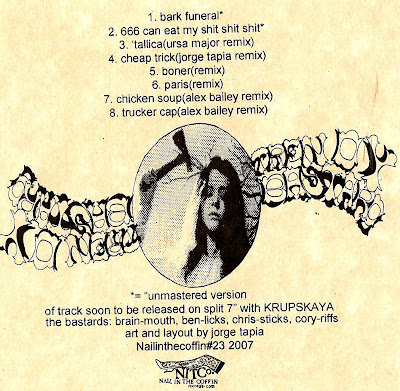 1. bark funeral*
2. 666 can eat my shit shit shit*
3. 'tallica(ursa major remix)
4. cheap trick(jorge tapia remix)
5. boner(remix)
6. paris(remix)
7. chicken soup(alex bailey remix)
8. trucker cap(alex bailey remix)
*= "unmastered version
of track soon to be released on split 7" with KRUPSKAYA
the bastards: brain-mouth, ben-licks, chris-sticks, cory-riffs
art and layout by jorge tapia
Nailinthecoffin#23 2007
NITCo.
NAIL IN THE COFFIN